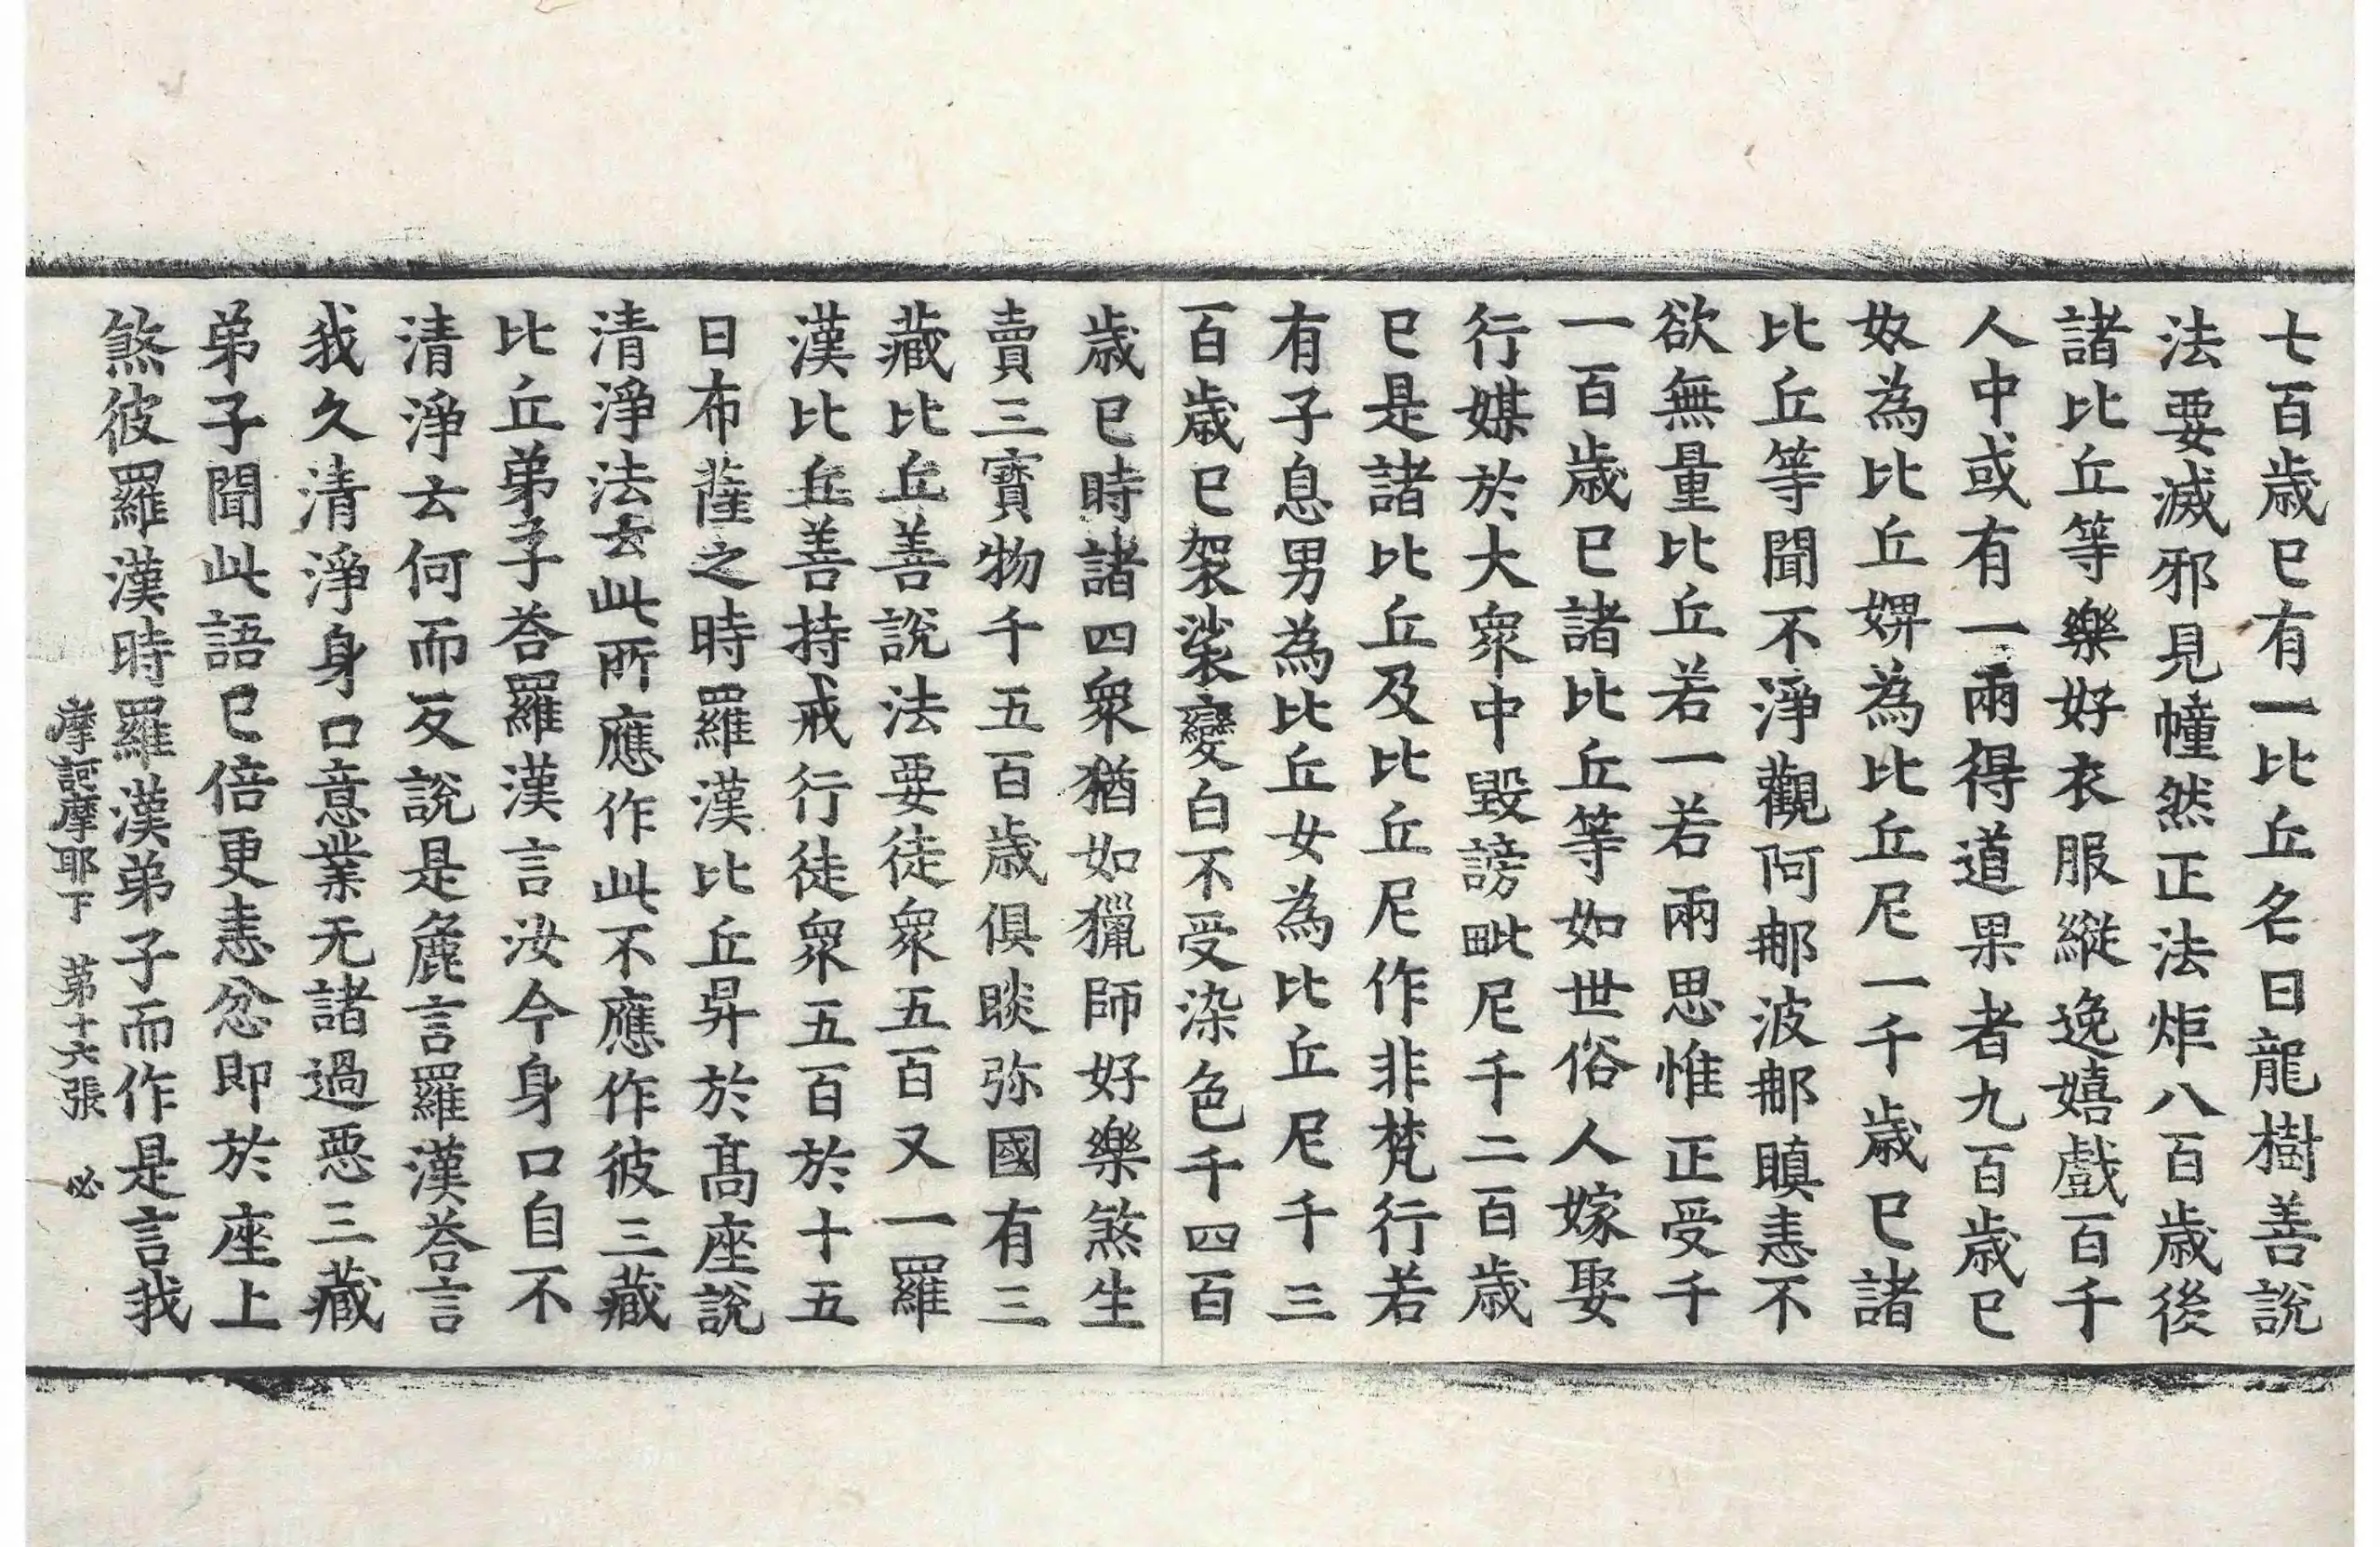 七百歳巳有一比丘名曰龍樹善說
法要滅邪見幢然正法炬八百歳後
諸比丘等樂好衣服縱逸嬉戲百千
人中或有一兩得道果者九百歳巳
奴為比丘婢為比丘尼一千歳巳諸
比丘等聞不淨觀阿那波那瞋恚不
欲無量比丘若一若兩思惟正受千
一百歳巳諸比丘等如世俗人嫁娶
行媒於大衆中毀謗毗尼千二百歳
巳是諸比丘及比丘尼作非梵行若
有子息男為比丘女為比丘尼千三
百歳巳袈裟變白不受染色千四百
歳巳時諸四衆猶如獵師好樂煞生
賣三寳物千五百歳俱睒弥國有三
藏比丘善說法要徒衆五百又一羅
漢比丘善持戒行徒衆五百於十五
日布薩之時羅漢比丘昇於髙座說
清淨法云此所應作此不應作彼三藏
比丘弟子荅羅漢言汝今身口自不
清淨云何而反說是麁言羅漢荅言
我久清淨身口意業无諸過惡三藏
弟子聞此語巳倍更恚忿即於座上
煞彼羅漢時羅漢弟子而作是言我
摩訶摩耶下 第十六張 必